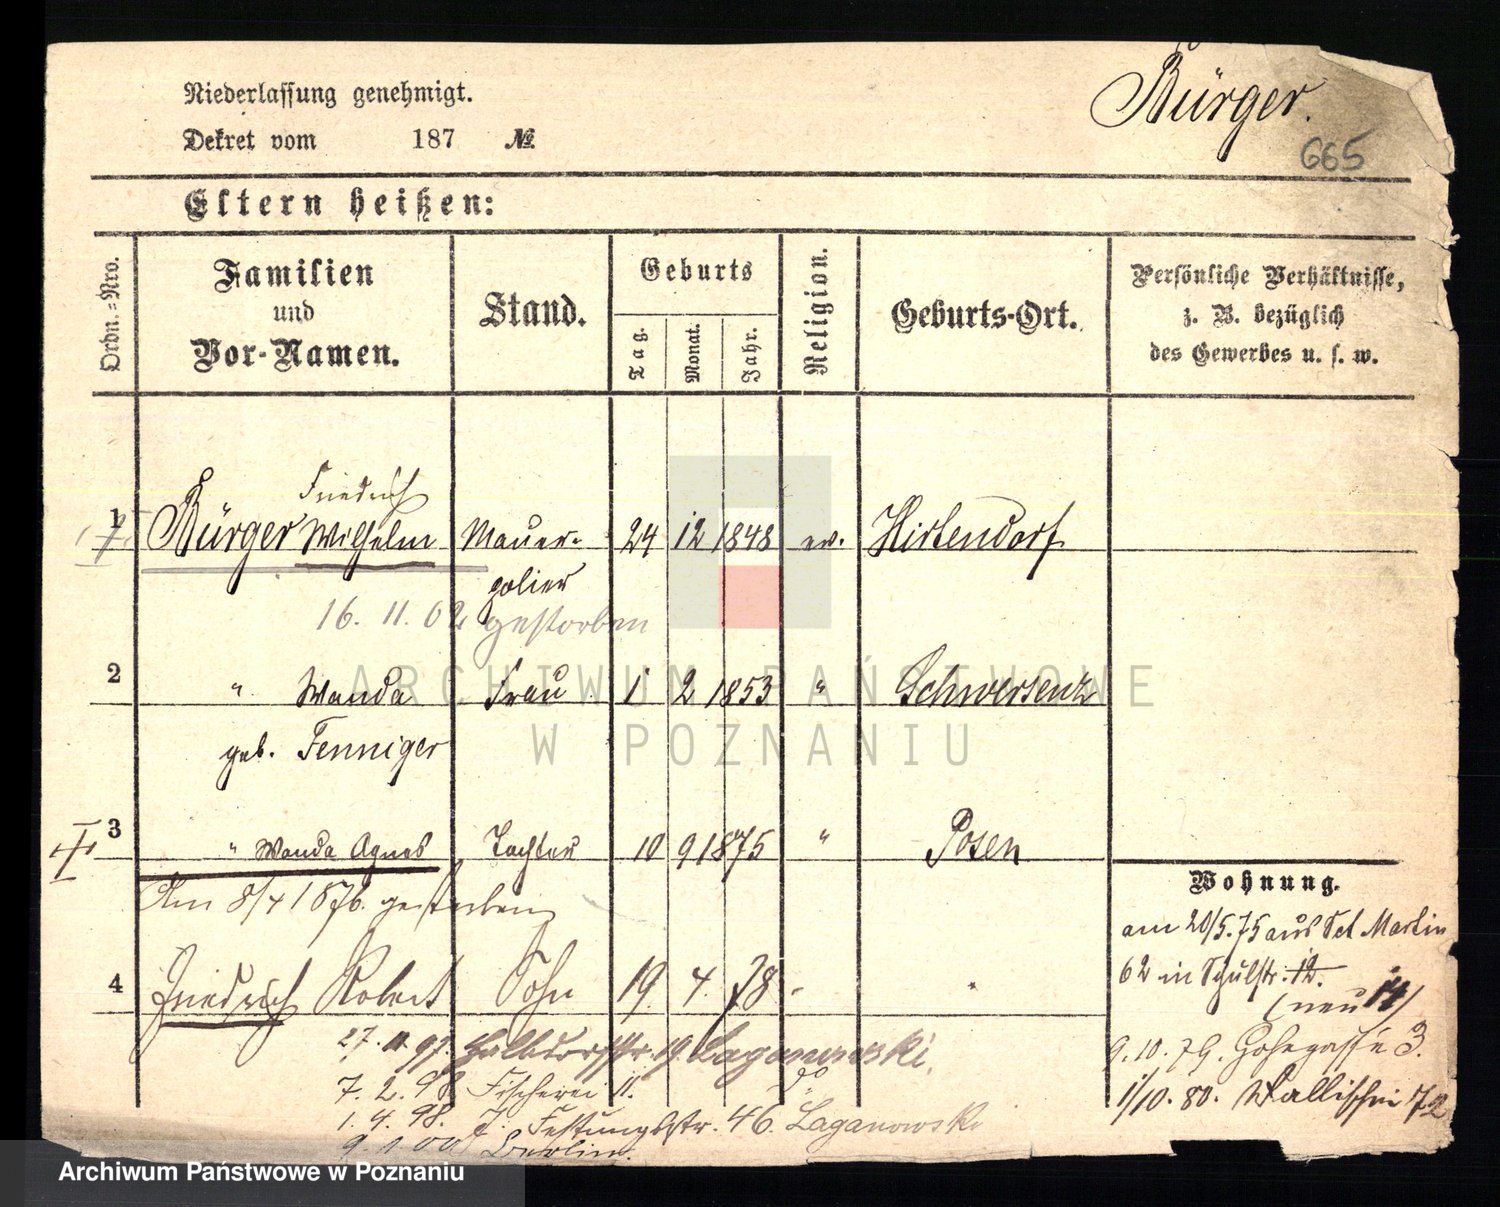 Bürger.
665
Niederlassung genehmigt.
Dekret vom 187 №
Eltern heißen:
Ordn.=Nro.
Familien und Vor-Namen.
Stand.
Geburts
Tag.
Monat.
Jahr.
Religion.
Geburts-Ort.
Persönliche Verhältnisse, z. B. bezüglich des Gewerbes u. s. w.
Friedrich
1 Bürger Wilhelm Mauer= 24 12 1848 ev. Hirtendorf
polier
16. 11. 02 gestorben
2 " Wanda Frau 1 2 1853 " Schwersenz
geb. Fenniger
3 " Wanda Agnes Tochter 10 9 1875 " Posen
Am 8/4 1876. gestorben
4 Friedrich Robert Sohn 19. 4. 78 " "
27. 11. 97. 19. Laganowski.
7. 2. 98 Fischerei 11. do
1. 4. 98. Festungsstr. 46. Laganowski
9. 1 00 Berlin.
Wohnung.
am 20/5. 75 aus Sct Martin
62 in Schulstr. 12.
(neu 14)
9. 10. 79. 3.
1/10. 80. Wallischei 72
ARCHIWUM PAŃSTWOWE
W POZNANIU
Archiwum Państwowe w Poznaniu